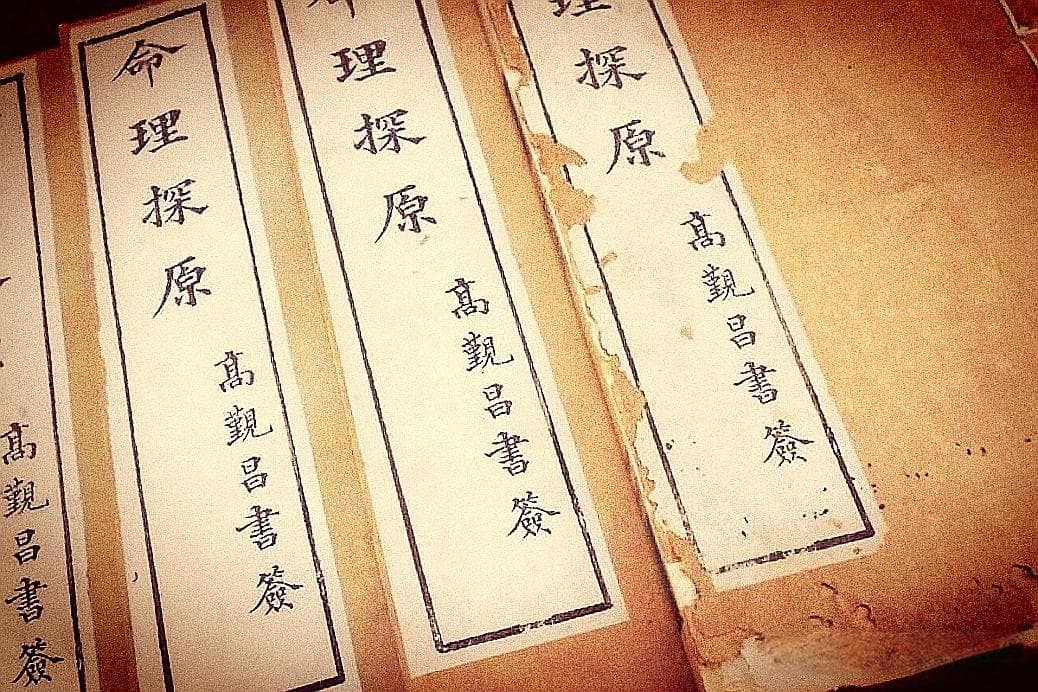 高覲昌書簽
命理探原
高覲昌書簽
命理探原
高覲昌書簽
理探原
高覲昌書簽